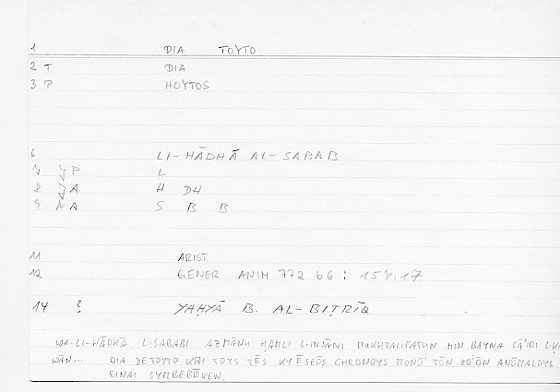 1 DIA TOYTO
2 T DIA
3 P HOYTOS
6 LI-HĀDHĀ AL-SABAB
7 P L
8 A H DH
9 NA S B B
11 ARIST
12 GENER ANIM 772 b6 : 154.17
14 ? YAḤYĀ B. AL-BITRĪQ
WA-LI-HĀDHĀ L-SABABI AZMĀNU ḤAMLI L-INSĀNI MUKHTALIFATUN MIN BAYNA SĀ'IRI L-ḤA
WĀN... DIA DE TOYTO KAI TOYS TĒS KYĒSEŌS CHRONOYS MONŌ' TŌN ZŌ'ŌN ANŌMALOYS
EINAI SYMBEBĒKEN.